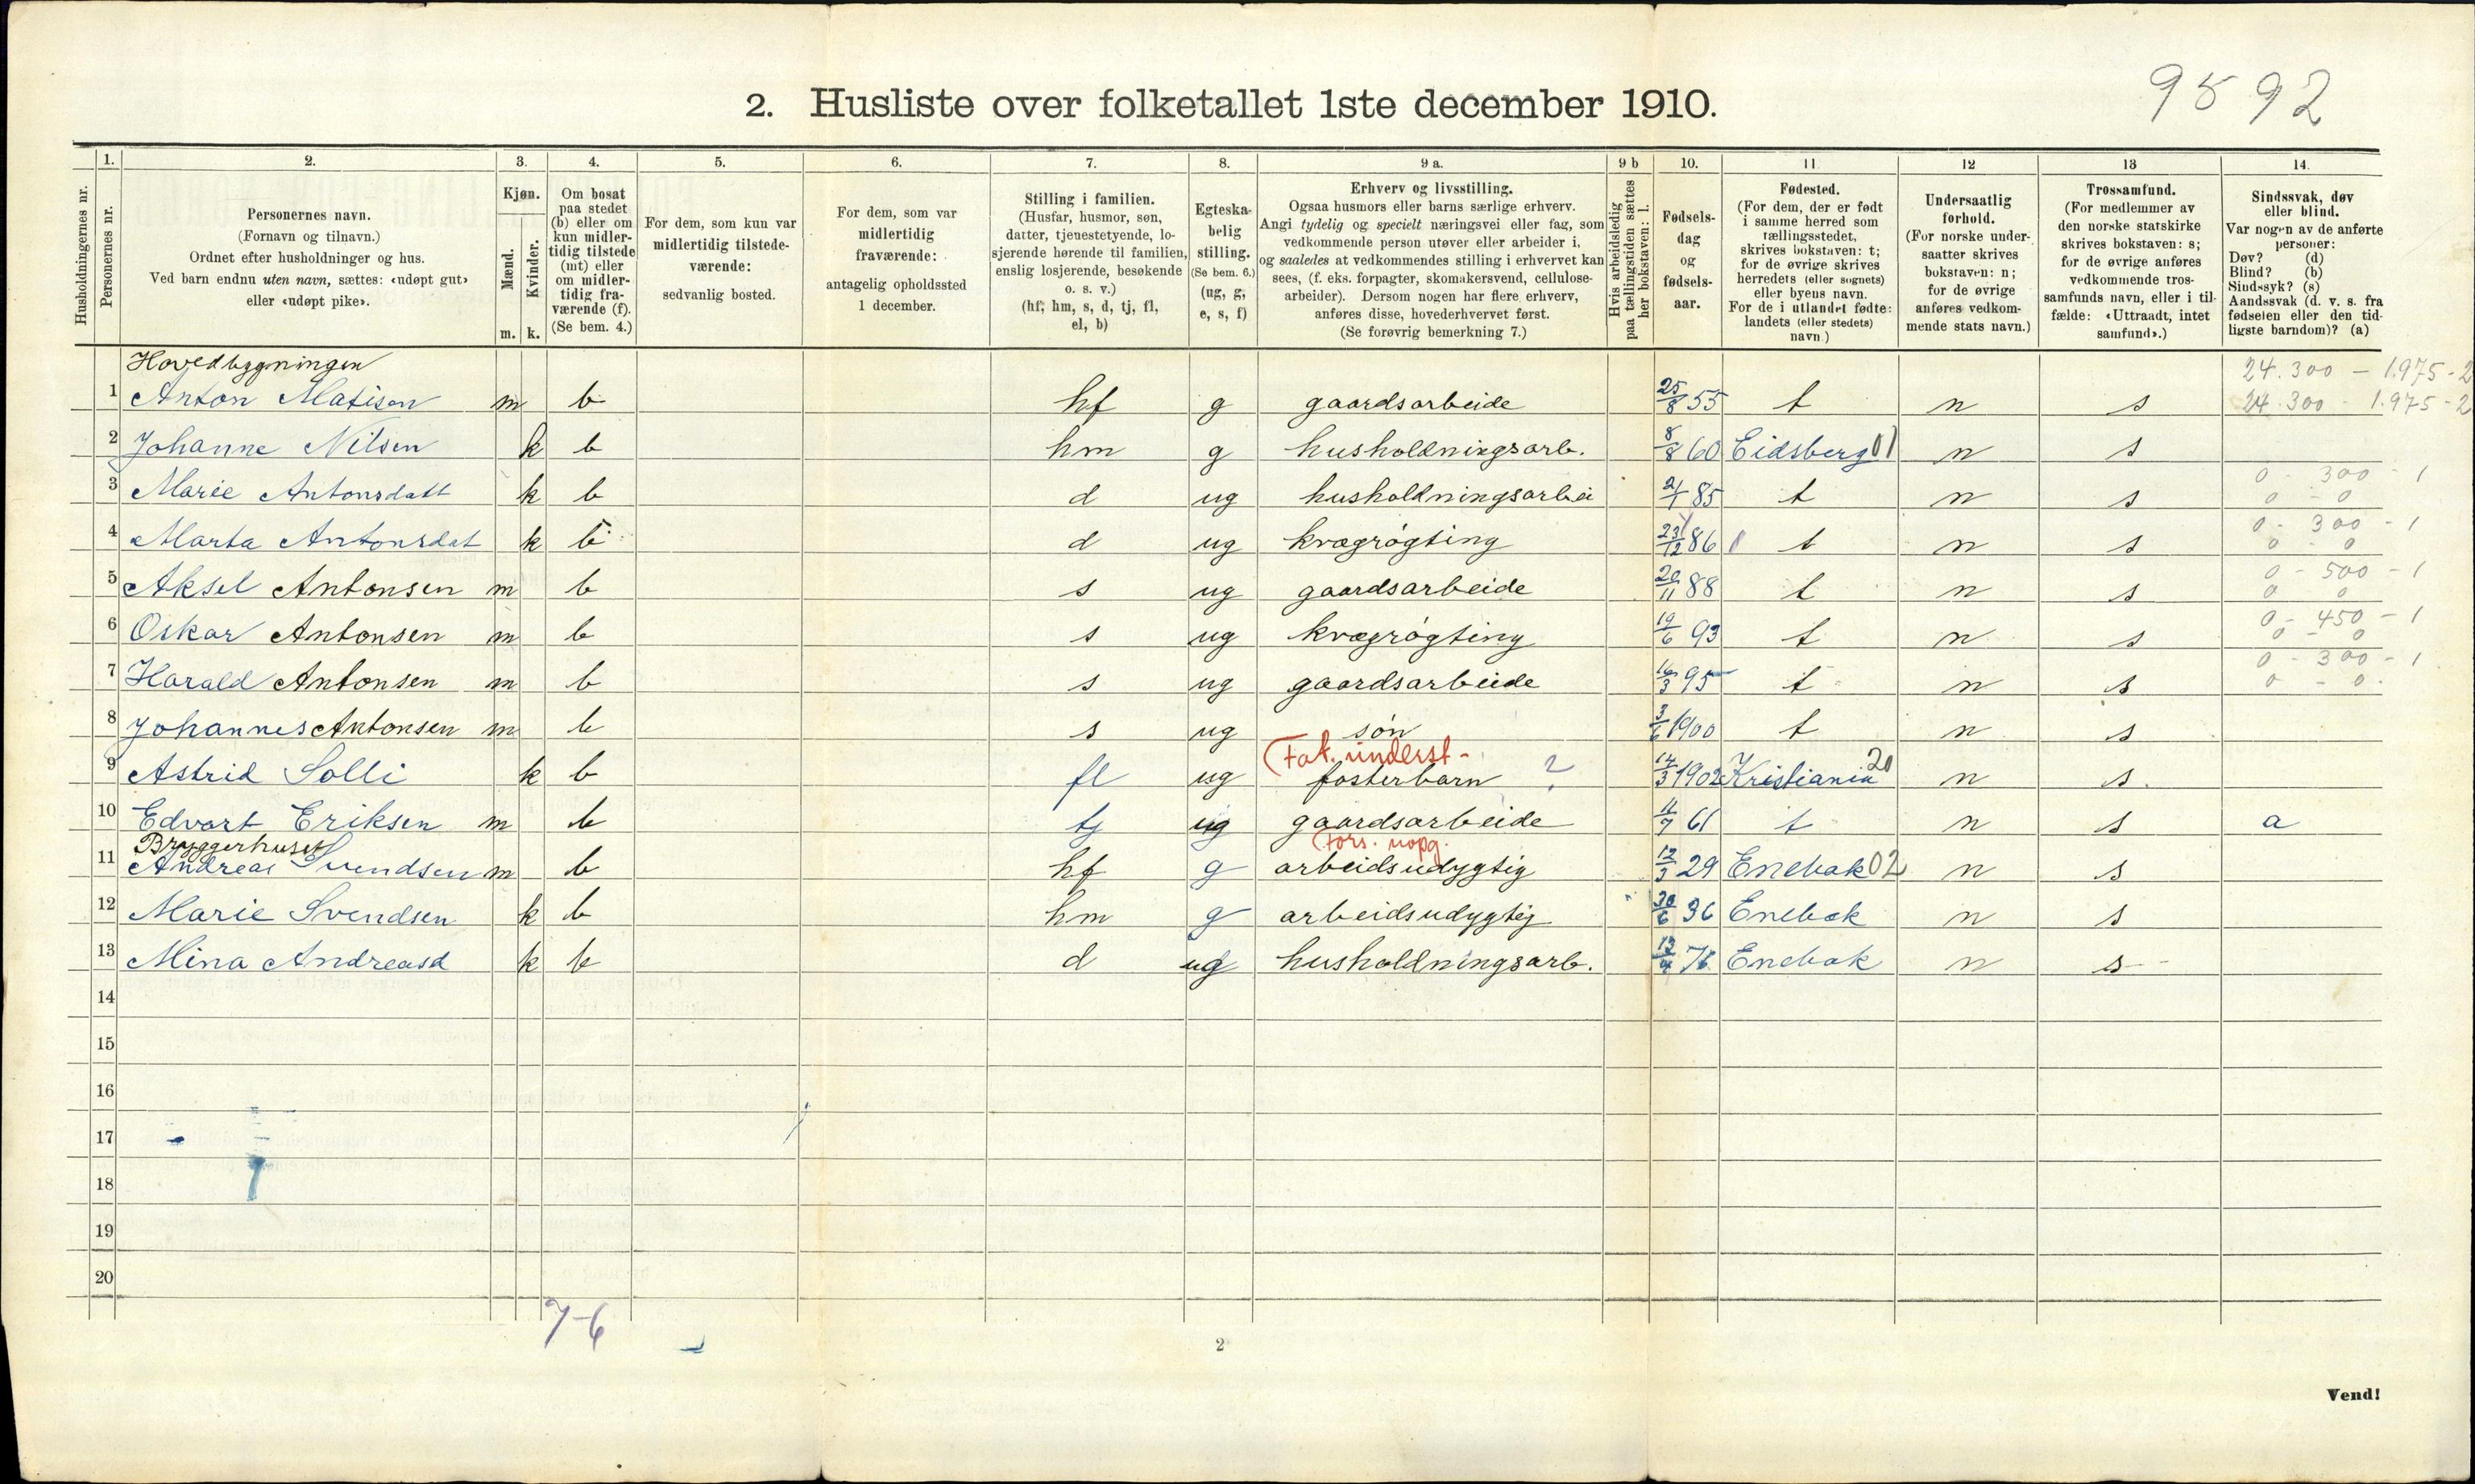 9592
2. Husliste over folketallet 1ste december 1910.
Husholdningernes nr.
1. Personernes nr.
2. Personernes navn. (Fornavn og tilnavn.) Ordnet efter husholdninger og hus. Ved barn endnu uten navn, sættes: «udøpt gut» eller «udøpt pike».
3. Kjøn. Mænd. m. Kvinder. k.
4. Om bosat paa stedet (b) eller om kun midlertidig tilstede (mt) eller om midlertidig fraværende (f). (Se bem. 4.)
5. For dem, som kun var midlertidig tilstedeværende: sedvanlig bosted.
6. For dem, som var midlertidig fraværende: antagelig opholdssted 1 december.
7. Stilling i familien. (Husfar, husmor, søn, datter, tjenestetyende, losjerende hørende til familien, enslig losjerende, besøkende o. s. v.) (hf, hm, s, d, tj, fl, el, b)
8. Egteskabelig stilling. (Se bem. 6.) (ug, g, e, s, f)
9 a. Erhverv og livsstilling. Ogsaa husmors eller barns særlige erhverv. Angi tydelig og specielt næringsvei eller fag, som vedkommende person utøver eller arbeider i, og saaledes at vedkommendes stilling i erhvervet kan sees, (f. eks. forpagter, skomakersvend, cellulosearbeider). Dersom nogen har flere erhverv, anføres disse, hovederhvervet først. (Se forøvrig bemerkning 7.)
9 b Hvis arbeidsledig paa tællingstiden sættes her bokstaven: l.
10. Fødselsdag og fødselsaar.
11. Fødested. (For dem, der er født i samme herred som tællingsstedet, skrives bokstaven: t; for de øvrige skrives herredets (eller sognets) eller byens navn. For de i utlandet fødte: landets (eller stedets) navn.)
12 Undersaatlig forhold. (For norske undersaatter skrives bokstaven: n; for de øvrige anføres vedkommende stats navn.)
13 Trossamfund. (For medlemmer av den norske statskirke skrives bokstaven: s; for de øvrige anføres vedkommende trossamfunds navn, eller i tilfælde: «Uttraadt, intet samfund».)
14. Sindssvak, døv eller blind. Var nogen av de anførte personer: Døv? (d) Blind? (b) Sindssyk? (s) Aandssvak (d. v. s. fra fødselen eller den tidligste barndom)? (a)
Hovedbygningen 24.300 - 1.975-2
1 Anton Matisen m b hf g gaardsarbeide 25/8 55 t n s 24.300 - 1.975-2
2 Johanne Nilsen k b hm g husholdningsarb. 8/8 60 Eidsberg 01 n s
0 - 300 - 1
3 Marie Antonsdatt k b d ug husholdningsarbei 2/1 85 t n s 0 - 0
0 - 300 - 1
4 Marta Antonsdat k b d ug kvægrøgting 23/12 86 t n s 0 - 0
0 - 500 - 1
5 Aksel Antonsen m b s ug gaardsarbeide 20/11 88 t n s 0 0
0 - 450 - 1
6 Oskar Antonsen m b s ug kvægrøgting 19/6 93 t n s 0 - 0
0 - 300 - 1
7 Harald Antonsen m b s ug gaardsarbeide 16/3 95 t n s 0 - 0
8 Johannes Antonsen m b s ug søn 3/6 1900 t n s
(Fat. underst-
9 Astrid Solli k b fl ug fosterbarn ? 14/3 1902 Kristiania 20 n s
10 Edvart Eriksen m b tj ug gaardsarbeide 11/7 61 t n s a
Bryggerhuset (fors. uopg.
11 Andreas Svendsen m b hf g arbeidsudygtig 12/3 29 Enebak 02 n s
12 Marie Svendsen k b hm g arbeidsudygtig 30/6 36 Enebak n s
13 Mina Andreasd k b d ug husholdningsarb. 13/4 76 Enebak n s
14
15
16
17
18
19
20
7-6
2
Vend!